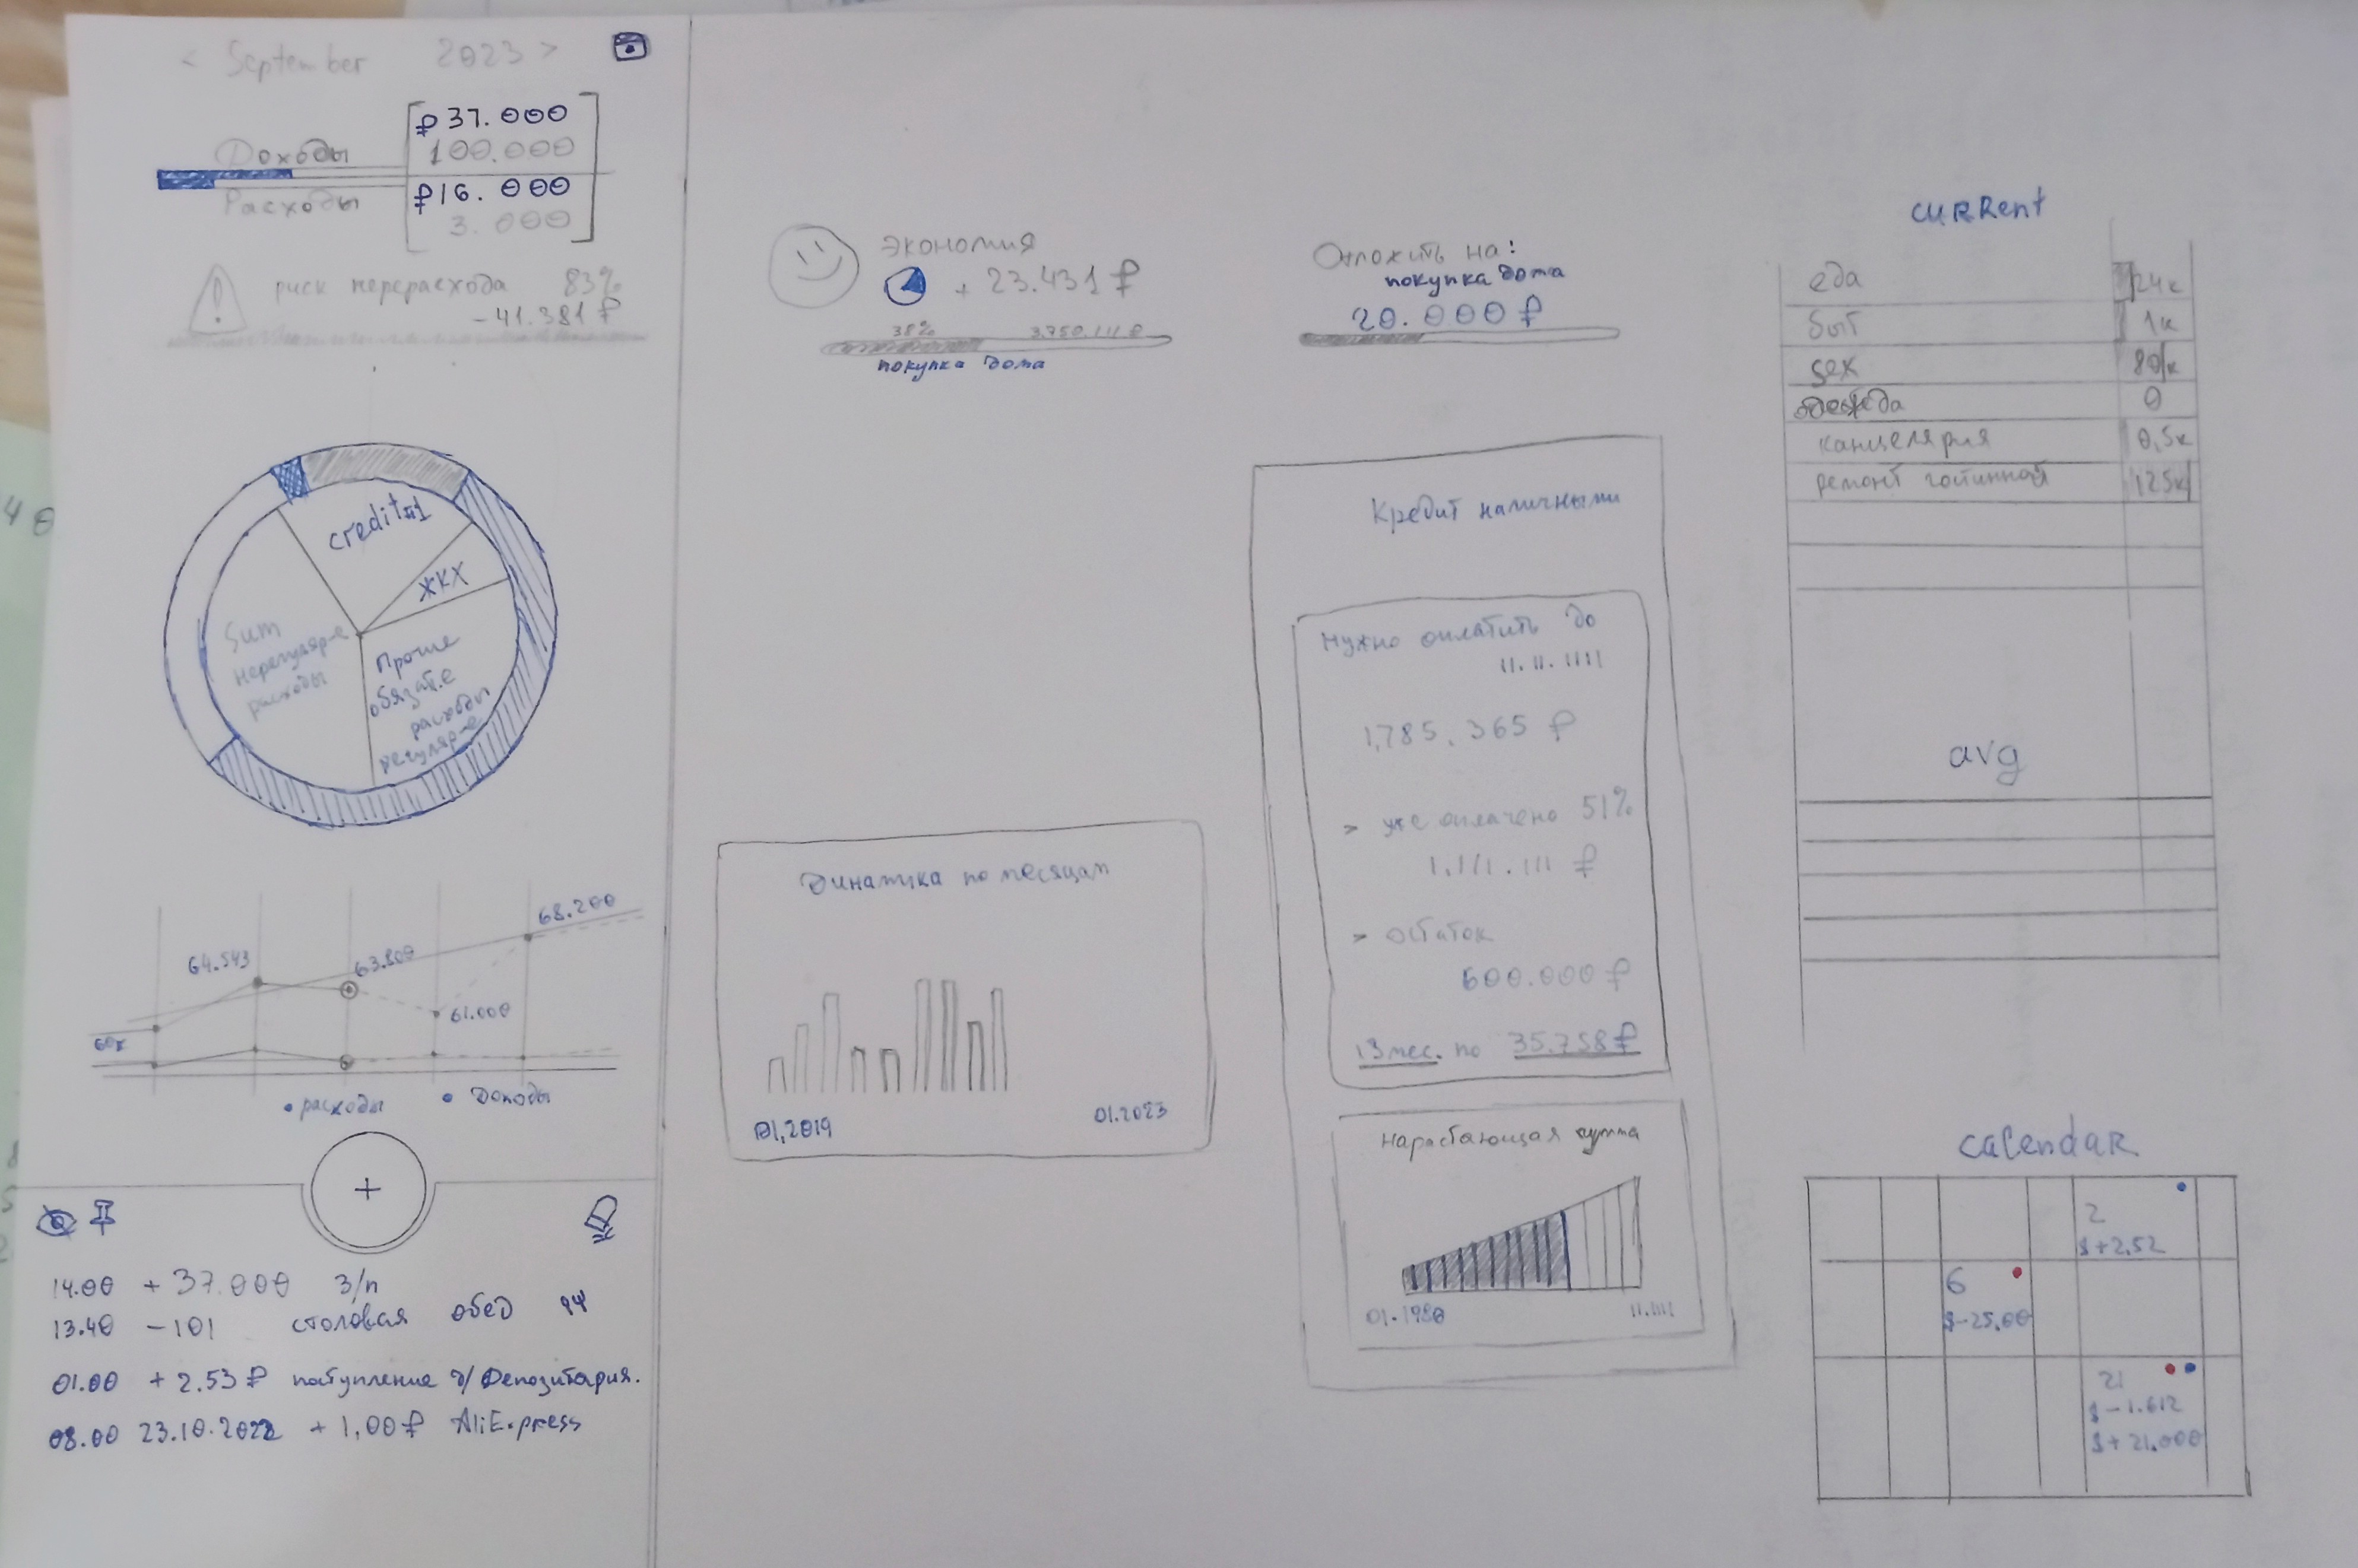 < September 2023 >
₽ 37.000
Доходы 100.000
₽ 16.000
Расходы
3.000
риск перерасхода 83%
-41.381 ₽
credit#1
ЖКХ
Sum
нерегулярн-е
расходы
Прочие
обязат.е
расходы
регулярн-е
68.200
64.543
63.800
61.000
60к
• расходы • Доходы
+
14.00 + 37.000 З/п
13.40 - 101 столовая обед
01.00 + 2.53 ₽ поступление д/Депозитария.
08.00 23.10.2022 + 1,00 ₽ AliExpress
экономия
+ 23.431 ₽
38% 3.750.111 ₽
покупка дома
Отложить на:
покупка дома
20.000 ₽
Динамика по месяцам
01,2019 01.2023
Кредит наличными
Нужно оплатить до
11.11.1111
1,785.365 ₽
> уже оплачено 51%
1.111.111 ₽
> остаток
600.000 ₽
13 мес. по 35.758 ₽
нарастающая сумма
01.1980 11.1111
current
еда 24к
быт 1к
sex 80к
одежда 0
канцелярия 0,5к
ремонт гостинной 125к
avg
calendar
2
$+2.52
6
$-25.00
21
$-1.612
$+21.000